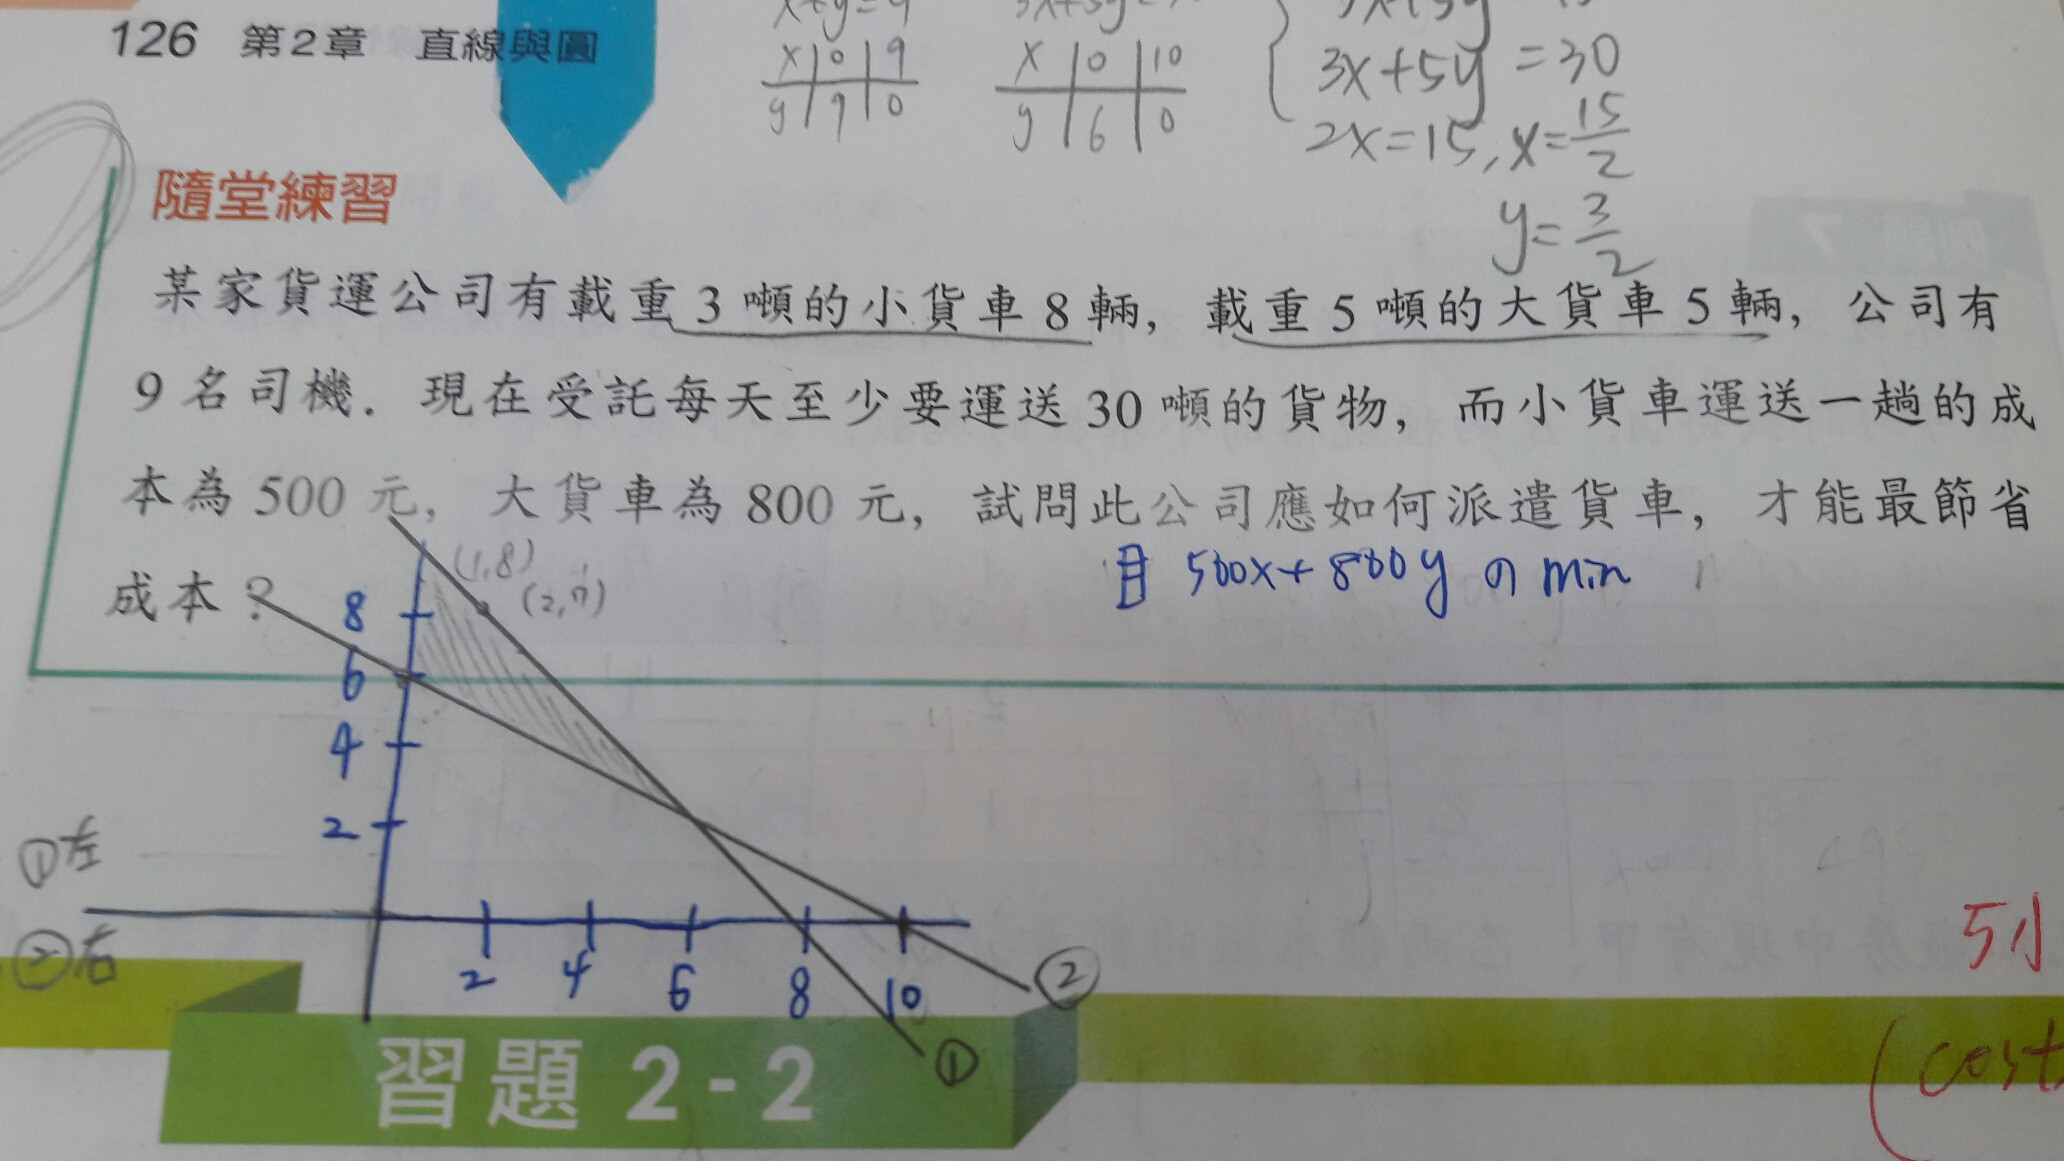 126 第2章 直線與圓
x+y=9
x 0 9
y 9 0
x 0 10
y 6 0
3x+5y =30
2x=15, x=15/2
y=3/2
隨堂練習
某家貨運公司有載重 3 噸的小貨車 8 輛，載重 5 噸的大貨車 5 輛，公司有
9 名司機．現在受託每天至少要運送 30 噸的貨物，而小貨車運送一趟的成
本為 500 元，大貨車為 800 元，試問此公司應如何派遣貨車，才能最節省
成本？
目 500x+800y の min
(1,8)
(2,7)
8
6
4
2
①左
②右
2 4 6 8 10
②
①
5小
(cost
習題 2-2